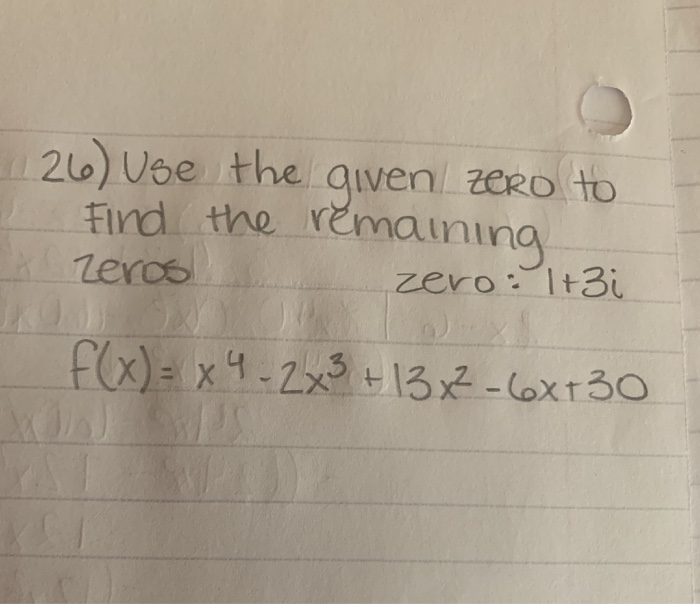 26) Use the given zero to
Find the remaining
zeros zero: 1+3i
f(x) = x⁴ - 2x³ + 13x² - 6x + 30